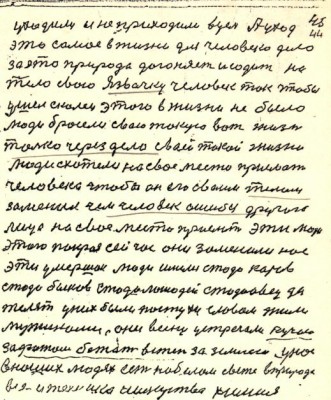 уходили и не приходили всем А уход
это самое в жизни для человека дело
за это природа догоняет и садит на
тело свою Язвачку человек ток чтобы
этого в жизни не было
люди бросили свою такую вот жизнь
только через дело своей такой жизни
люди схотели на свое место принять
человека чтобы он его своим телом
заменил чем человек ошибку другого
лица на свое место принять эти люди
этого сей час они заменили нас
эти люди имели стадо коров
стадо быков стадо лошодей стадо овец да
телят у них были пастухи словом жили
мужиками, они весну встречали
богат за землею у
людях есть на белом свете в природе
и техника искуства химия